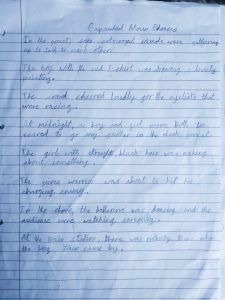 Expanded Noun Phrases
In the quiet, two were gathering
up to talk to each other.
The boy with the red T-shirt was drawing a lovely
painting.
The crowd cheered loudly for the cyclists that
were racing.
At midnight, a boy and were both too
scared to go any further in the dark forest.
The girl with straight black hair was
about something.
The warrior was about to hit the
charging enemy.
In the show, the ballerina was dancing and the
audience were watching
At the train station, there was nobody there when
the train came by.